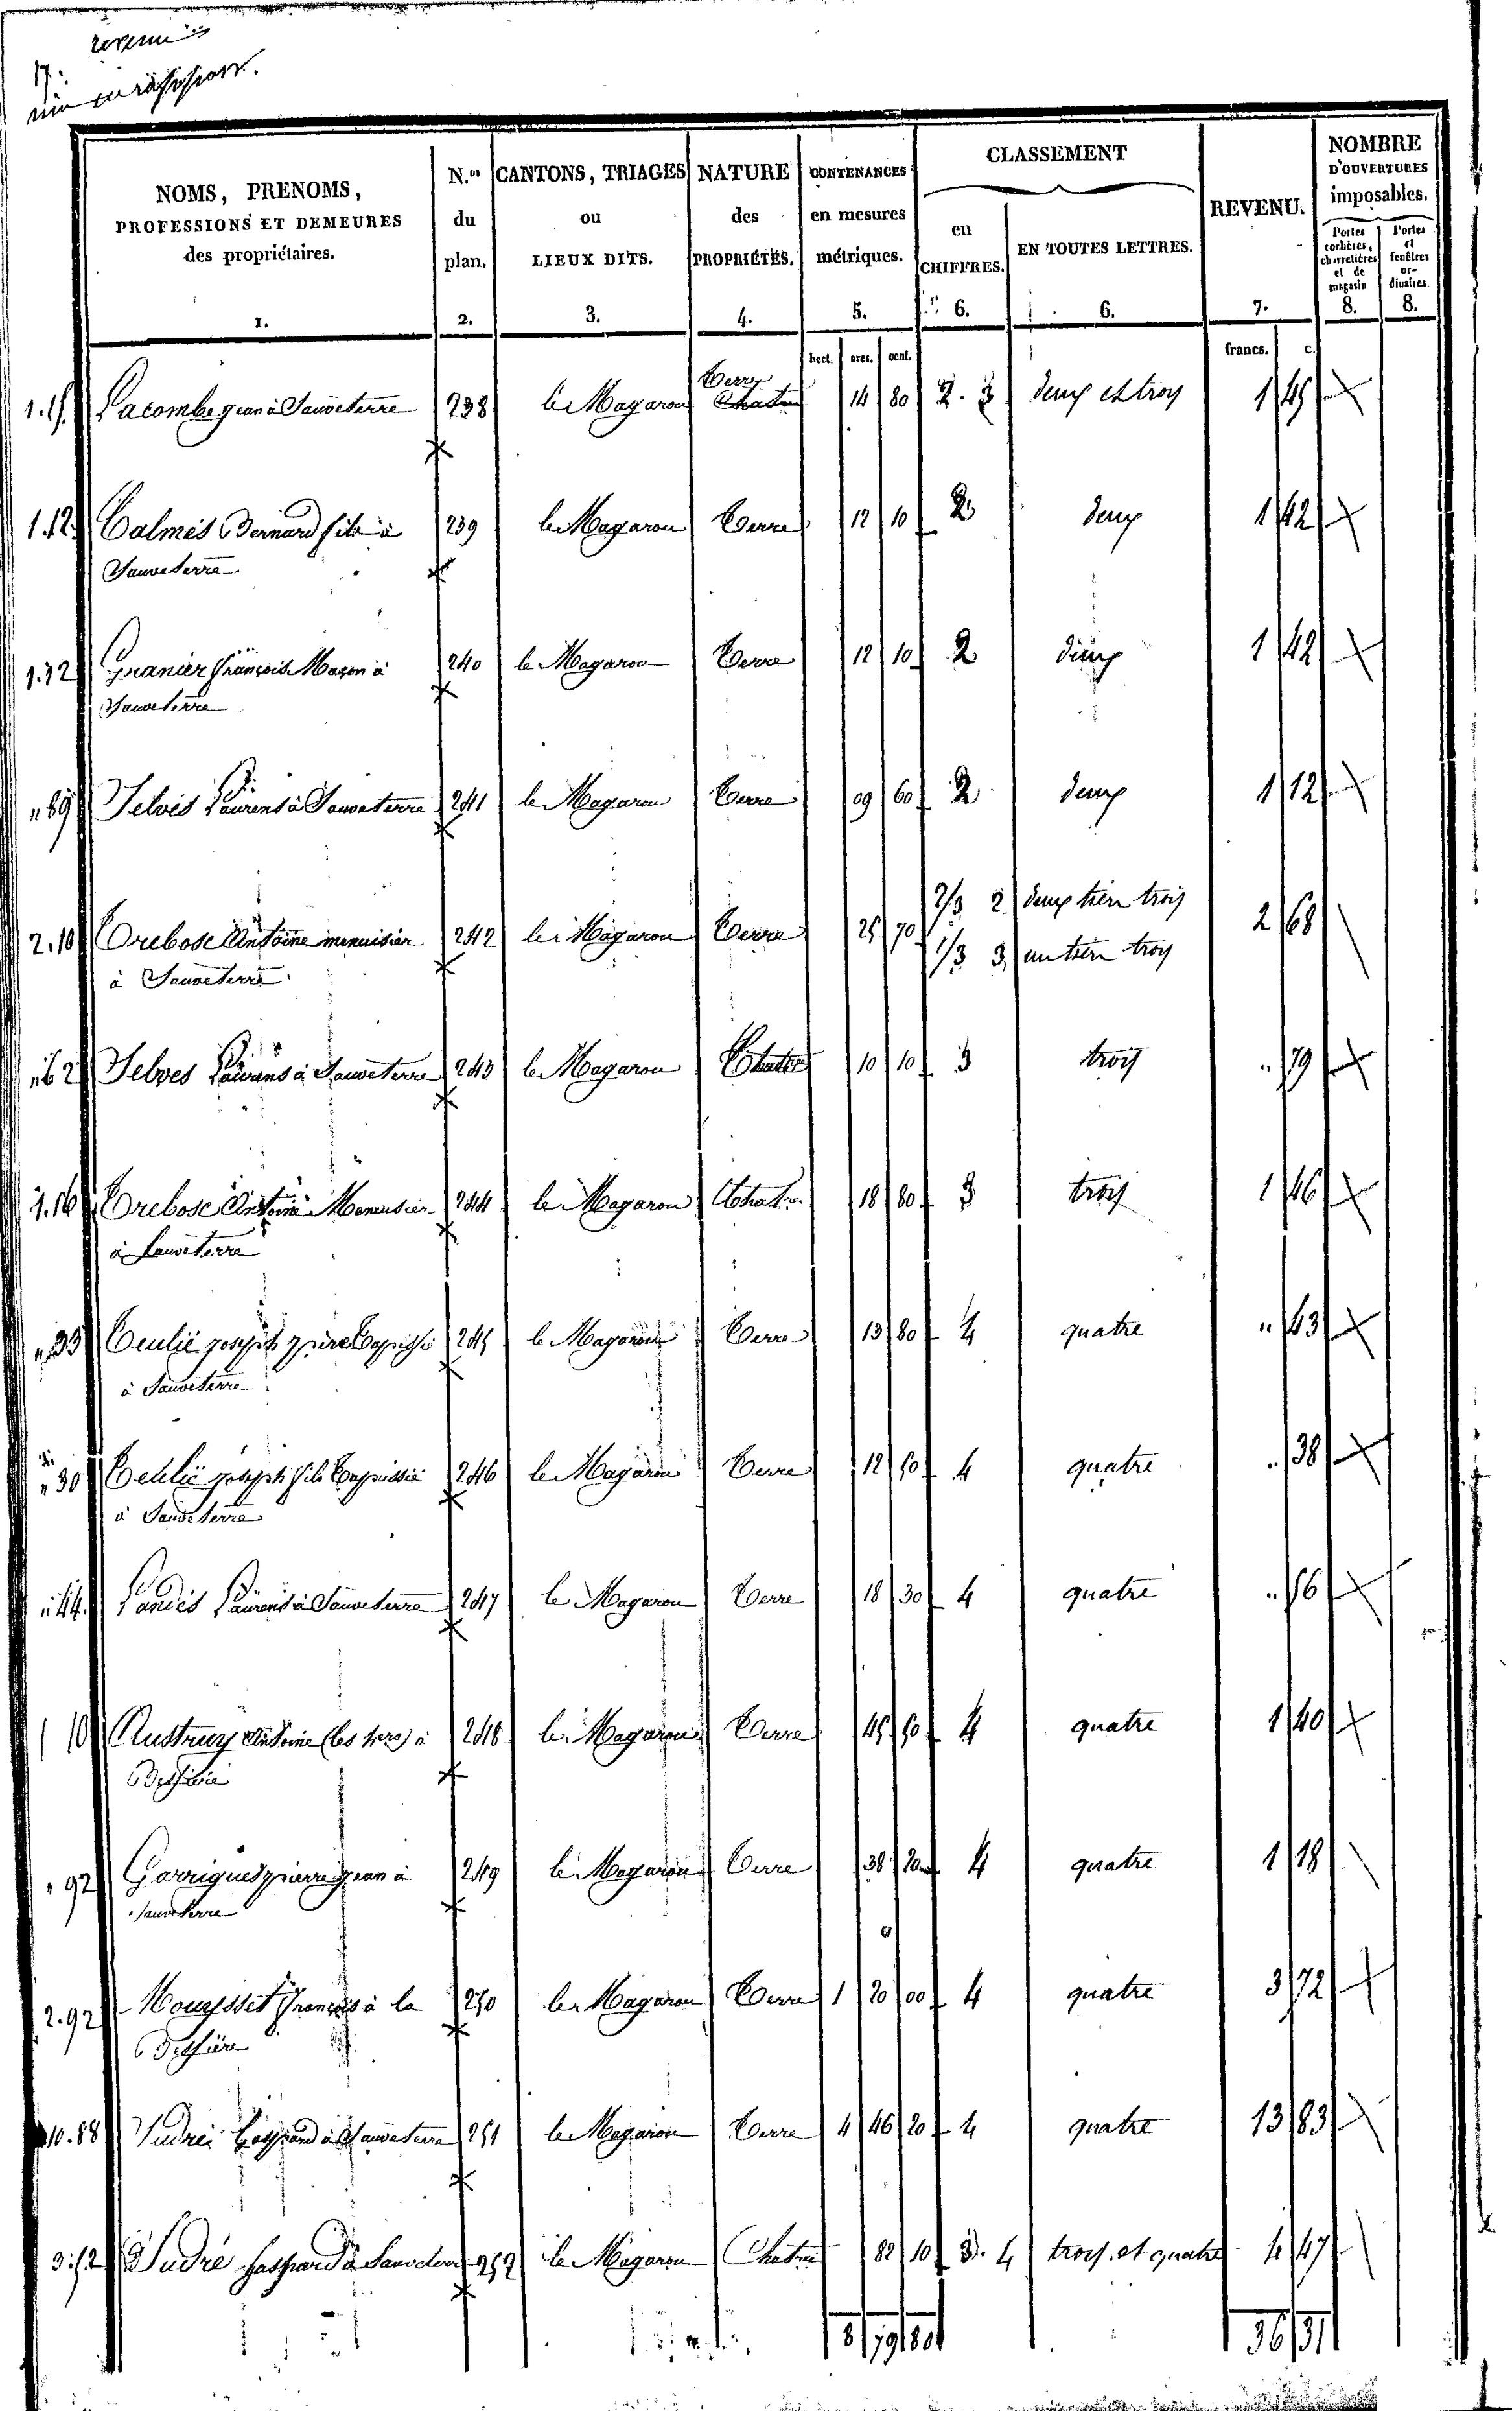 17.
NOMS, PRENOMS,
PROFESSIONS ET DEMEURES
des propriétaires.
1.
N.os
du
plan.
2.
CANTONS, TRIAGES
ou
LIEUX DITS.
3.
NATURE
des
PROPRIÉTÉS.
4.
CONTENANCES
en mesures
métriques.
5.
CLASSEMENT
en
CHIFFRES.
6.
EN TOUTES LETTRES.
6.
REVENU.
7.
NOMBRE
D'OUVERTURES
imposables.
Portes
cochères,
charretières
et de
magasin
8.
Portes
et
fenêtres
or-
dinaires.
8.
hect. ares. cent. francs. c.
Lacombe jean à Sauveterre 238 le Magaron Terre 14 80 2. 3 deux et trois 1 45
1.12 Calmés Bernard fils à 239 le Magaron Terre 12 10 2 deux 1 42
Sauveterre
1.12 Granier françois Maçon à 240 le Magaron Terre 12 10 2 deux 1 42
Sauveterre
" 89 Selvés Laurens à Sauveterre 241 le Magaron Terre 09 60 2 deux 1 12
2.10 Trebosc Antoine menuisier 242 le Magaron Terre 25 70 2/3 2 deux tiers trois 2 68
à Sauveterre 1/3 3 un tiers trois
" 62 Selves Laurens à Sauveterre 243 le Magaron Chatre 10 10 3 trois " 79
1.16 Trebosc Antoine Menuisier 244 le Magaron Chatre 18 80 3 trois 1 46
à Sauveterre
" 33 Teulié joseph père 245 le Magaron Terre 13 80 4 quatre " 43
à Sauveterre
" 30 Teulié joseph fils 246 le Magaron Terre 12 50 4 quatre " 38
à Sauveterre
" 44 Landés Laurens à Sauveterre 247 le Magaron Terre 18 30 4 quatre " 56
1 10 Austruy Antoine (les hers) à 248 le Magaron Terre 45 50 4 quatre 1 40
" 92 Garrigues pierre jean à 249 le Magaron Terre 38 20 4 quatre 1 18
Sauveterre
2.92 Mouysset françois à la 250 le Magaron Terre 1 20 00 4 quatre 3 72
10.88 Sudré Gaspard à Sauveterre 251 le Magaron Terre 4 46 20 4 quatre 13 83
3.52 Sudré Gaspard à Sauveterre 252 le Magaron Chatre 82 10 3. 4 trois et quatre 4 47
8 79 80 36 31